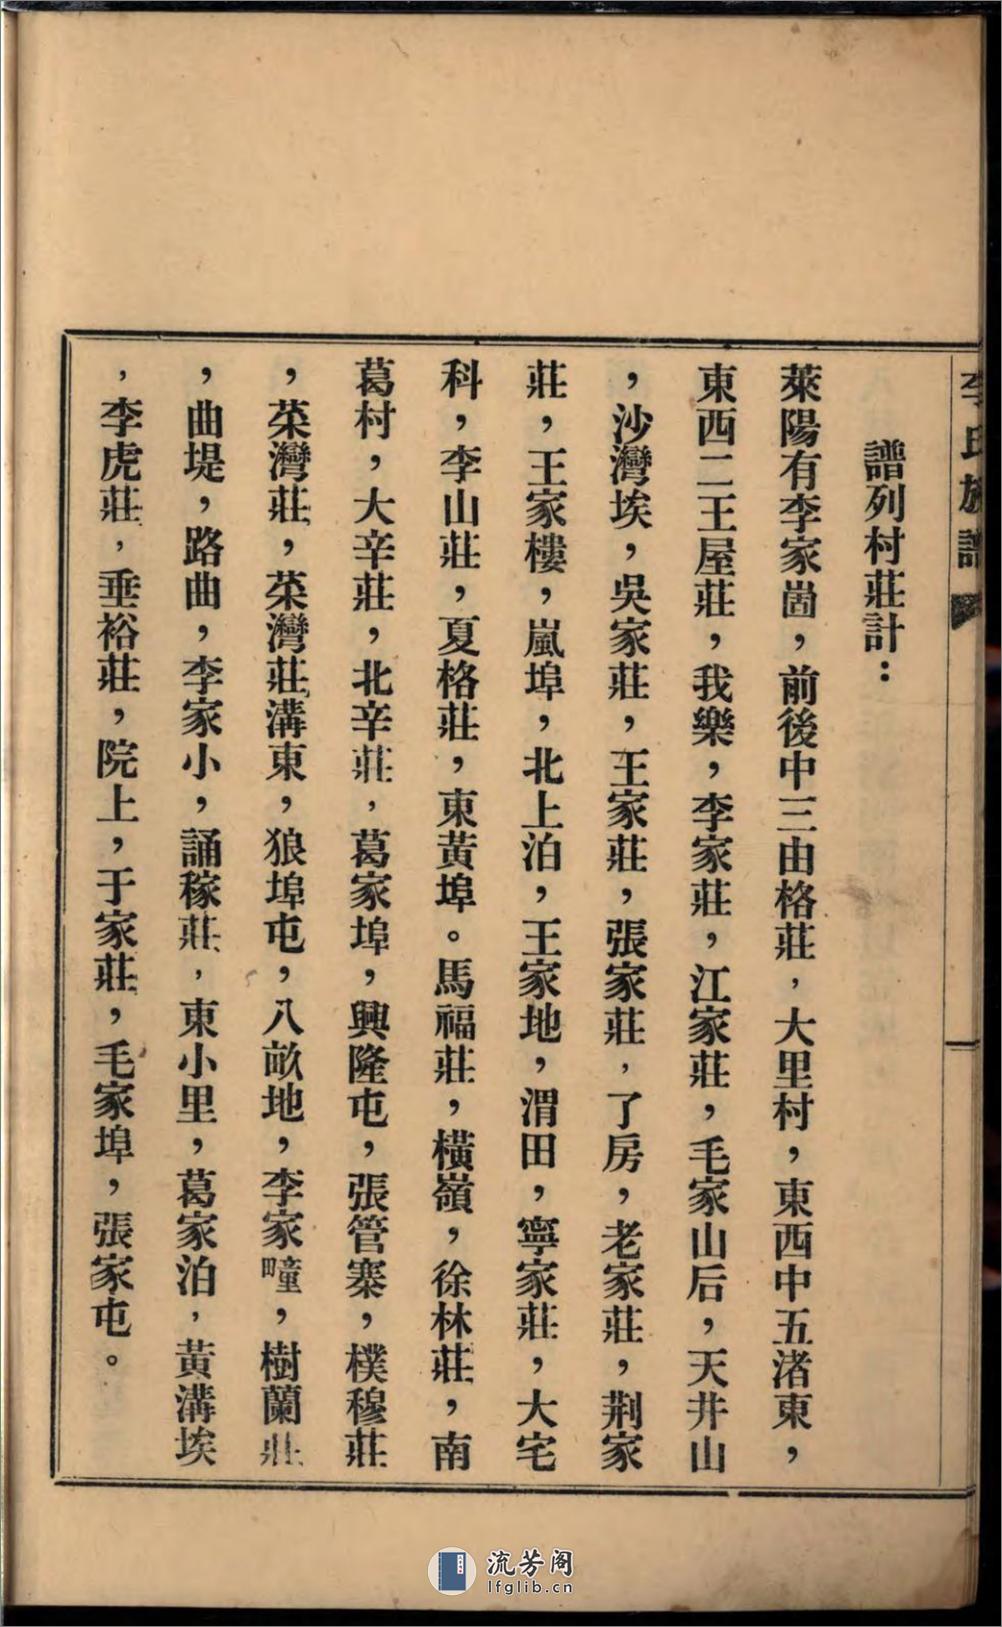 李氏族譜
譜列村莊計：
萊陽有李家崮，前後中三由格莊，大里村，東西中五渚東，
東西二王屋莊，我樂，李家莊，江家莊，毛家山后，天井山
，沙灣埃，吳家莊，王家莊，張家莊，了房，老家莊，荆家
莊，王家樓，嵐埠，北上泊，王家地，渭田，寧家莊，大宅
科，李山莊，夏格莊，東黃埠。馬福莊，橫嶺，徐林莊，南
葛村，大辛莊，北辛莊，葛家埠，興隆屯，張管寨，樸穆莊
，菜灣莊，菜灣莊溝東，狼埠屯，八畝地，李家疃，樹蘭莊
，曲堤，路曲，李家小，誦稼莊，東小里，葛家泊，黃溝埃
，李虎莊，垂裕莊，院上，于家莊，毛家埠，張家屯。
流芳阁
lfglib.cn